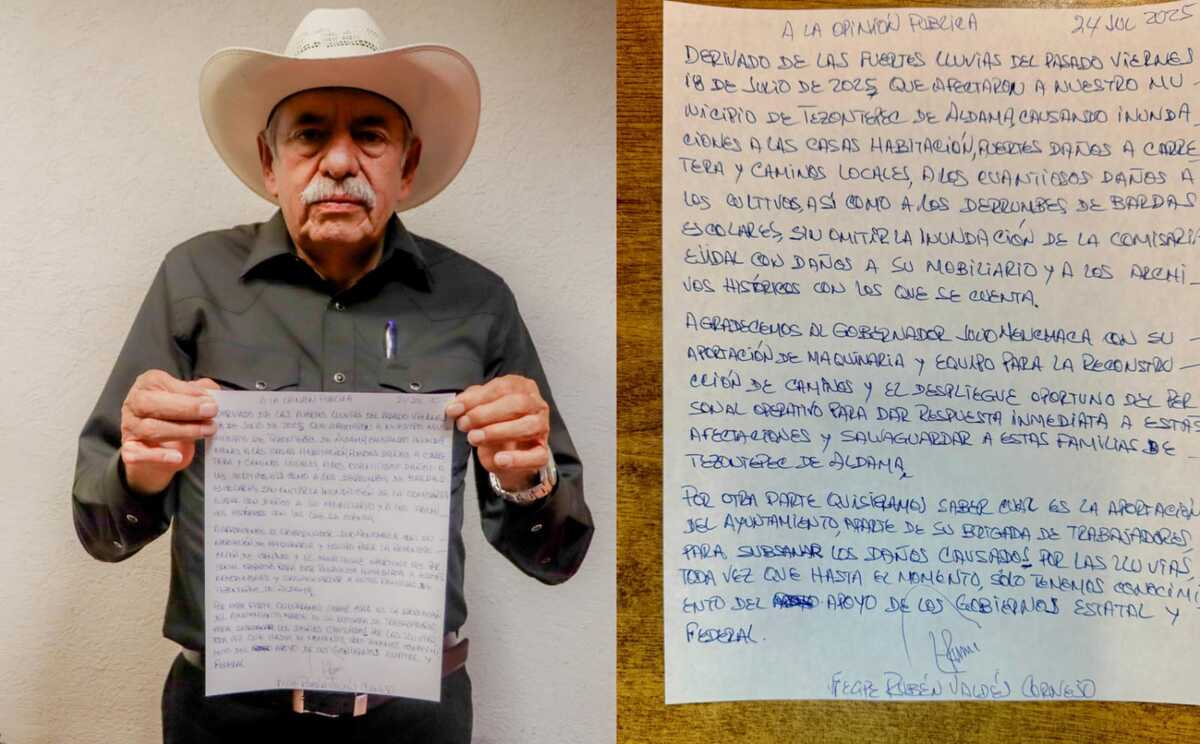 A LA OPINIÓN PUBLICA 24 JUL 2025
DERIVADO DE LAS FUERTES LLUVIAS DEL PASADO VIERNES
18 DE JULIO DE 2025, QUE AFECTARON A NUESTRO MU
NICIPIO DE TEZONTEPEC DE ALDAMA, CAUSANDO INUNDA
CIONES A LAS CASAS HABITACIÓN, FUERTES DAÑOS A CARRE
TERA Y CAMINOS LOCALES, A LOS CUANTIOSOS DAÑOS A
LOS CULTIVOS, ASÍ COMO A LOS DERRUMBES DE BARDAS
ESCOLARES, SIN OMITIR LA INUNDACIÓN DE LA COMISARIA
EJIDAL CON DAÑOS A SU MOBILIARIO Y A LOS ARCHI
VOS HISTÓRICOS CON LOS QUE SE CUENTA.
AGRADECEMOS AL GOBERNADOR JULIO MENCHACA CON SU
APORTACIÓN DE MAQUINARIA Y EQUIPO PARA LA RECONSTRU
CCIÓN DE CAMINOS Y EL DESPLIEGUE OPORTUNO DEL PER
SONAL OPERATIVO PARA DAR RESPUESTA INMEDIATA A ESTAS
AFECTACIONES Y SALVAGUARDAR A ESTAS FAMILIAS DE
TEZONTEPEC DE ALDAMA,
POR OTRA PARTE QUISIERAMOS SABER CUAL ES LA APORTACIÓN
DEL AYUNTAMIENTO, APARTE DE SU BRIGADA DE TRABAJADORES
PARA SUBSANAR LOS DAÑOS CAUSADOS POR LAS LLUVIAS
TODA VEZ QUE HASTA EL MOMENTO, SÓLO TENEMOS CONOCIMI
ENTO DEL APOYO DE LOS GOBIERNOS ESTATAL Y
FEDERAL.
FELIPE RUBÉN VALDÉS CORNEJO